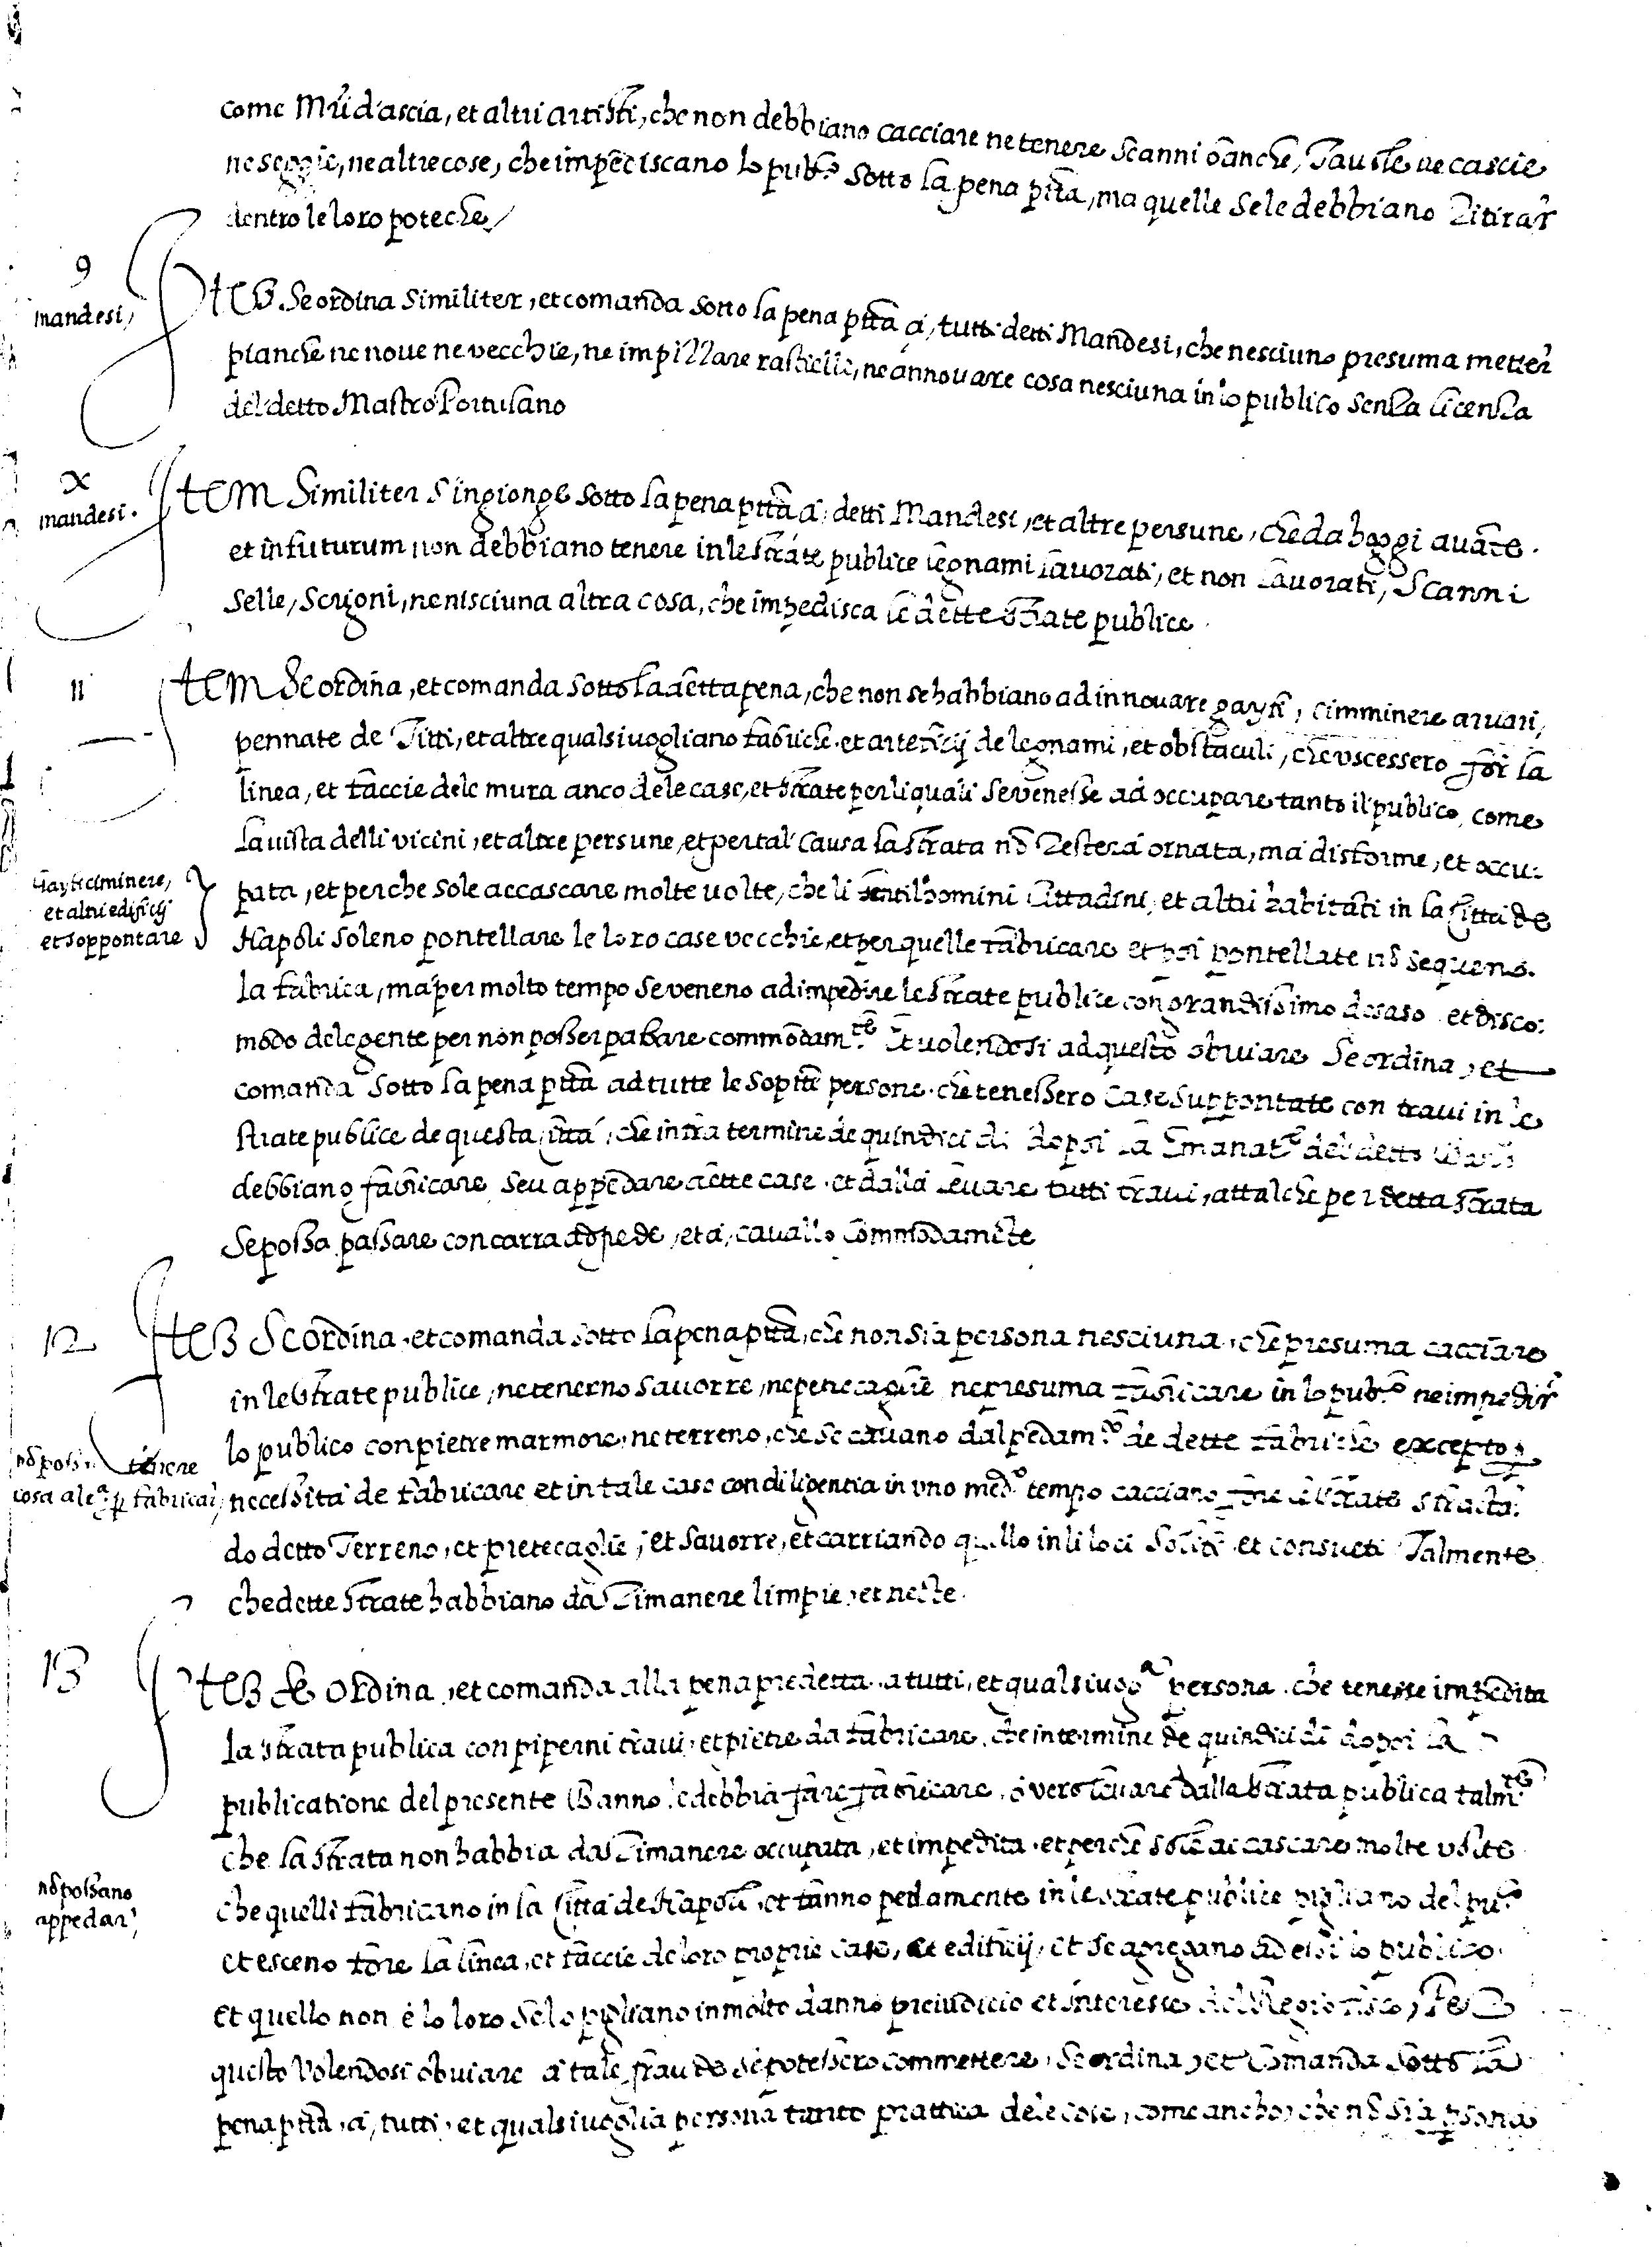 come Mri d'ascia, et altri artisti, che non debbiano cacciare ne tenere scanni banche, Tavole ne cascie
ne seggie, ne altre cose, che impediscano lo pubco sotto la pena ptta, ma quelle se le debbiano Ritirar
dentro le loro poteche
9
mandesi,
Item Se ordina similiter, et comanda sotto la pena ptta à, tutti detti Mandesi, che nesciuno presuma metter
pianche ne nove ne vecchie, ne impizzare rastielli, ne annovare cosa nesciuna in lo publico senza licenza
del detto Mastro Portulano
X
mandesi.
Item Similiter s'ingionge sotto la pena ptta à, detti Mandesi, et altre persune, che da hoggi avāte
et in futurum non debbiano tenere in le strate publice legnami lavorati, et non lavorati, Scanni
Selle, Scrigni, ne nisciuna altra cosa, che impedisca le dette strate publice
11
Item Se ordina, et comanda sotto la detta pena, che non se habbiano ad innovare gayfi, cimminere arvari,
pennate de Titti, et altre qualsivogliano fabriche et arteficij de legnami, et obstaculi, che uscessero for la
linea, et faccie dele mura anco dele case, et strate per li quali se venesse ad occupare tanto il publico, come
la vista delli vicini, et altre persune, et per tal causa la strata nō Resterà ornata, ma disforme, et occu:
Gayfi ciminere,
et altri edificij
et soppontare
pata, et perche sole accascare molte volte, che li gentilhomini Cittadini, et altri habitati in la Città de
Napoli soleno pontellare le loro case vecchie, et per quelle fabricare et poi pontellate nō sequeno
la fabrica, ma per molto tempo se veneno ad impedire le strate publice con grandissimo desaso et disco:
modo dele gente per non posser passare commodamte Et volendosi ad questo obviare Se ordina, et
comanda sotto la pena ptta ad tutte le soptte persone che tenessero Case suppontate con travi in le
strate publice de questa Città, che infra termine de quindici dì dopoi la Emanatne del detto Banno
debbiano fabricare seu appedare dette case et dallà levare tutti travi, attalche per detta strata
se possa passare con carra ad piede, et à, cavallo commodamēte
12
Item Se ordina et comanda sotto la pena ptta, che non sia persona nesciuna, che presuma cacciare
in le strate publice, ne tenerno savorre, ne petrecaglie ne presuma fabricare in lo pubco ne impedir
lo publico con pietre marmore, ne terreno, che se cavano dal pedamto de dette fabriche excepto p
nō possano tenere
cosa alca p fabricar,
necessità de fabricare et in tale caso con diligentia in uno medmo tempo cacciano fore le strate sfractā:
do detto Terreno, et pietecaglie, et savorre, et carriando quello in li loci soliti et consueti Talmente
che dette strate habbiano da Rimanere limpie, et nette.
13
Item Se ordina, et comanda alla pena predetta a tutti, et qualsivoga persona che tenesse impedita
la strata publica con piperni travi, et pietre da fabricare, che in termine de quindici dì dopoi la
publicatione del presente Banno le debbia fare fabricare, ò vero levare dalla strata publica talmte
che la strata non habbia da Rimanere occupata, et impedita, et perche sole accascare molte volte
nō possano
appedar,
che quelli fabricano in la Città de Napoli, et fanno pedamente in le strate publice pigliano del pubco
et esceno fore la linea, et faccie de loro proprie case, et edificij, et se agregano ad essi lo publico
et quello non è lo loro se lo pigliano in molto danno preiudicio et interesse del Regio fisco, Per
questo Volendosi obviare a tale fraude se potessero commettere, Se ordina, et Comanda sotto la
pena ptta, à, tutti, et qualsivoglia persona tanto prattica dele cose, come ancho, che nō sia psona